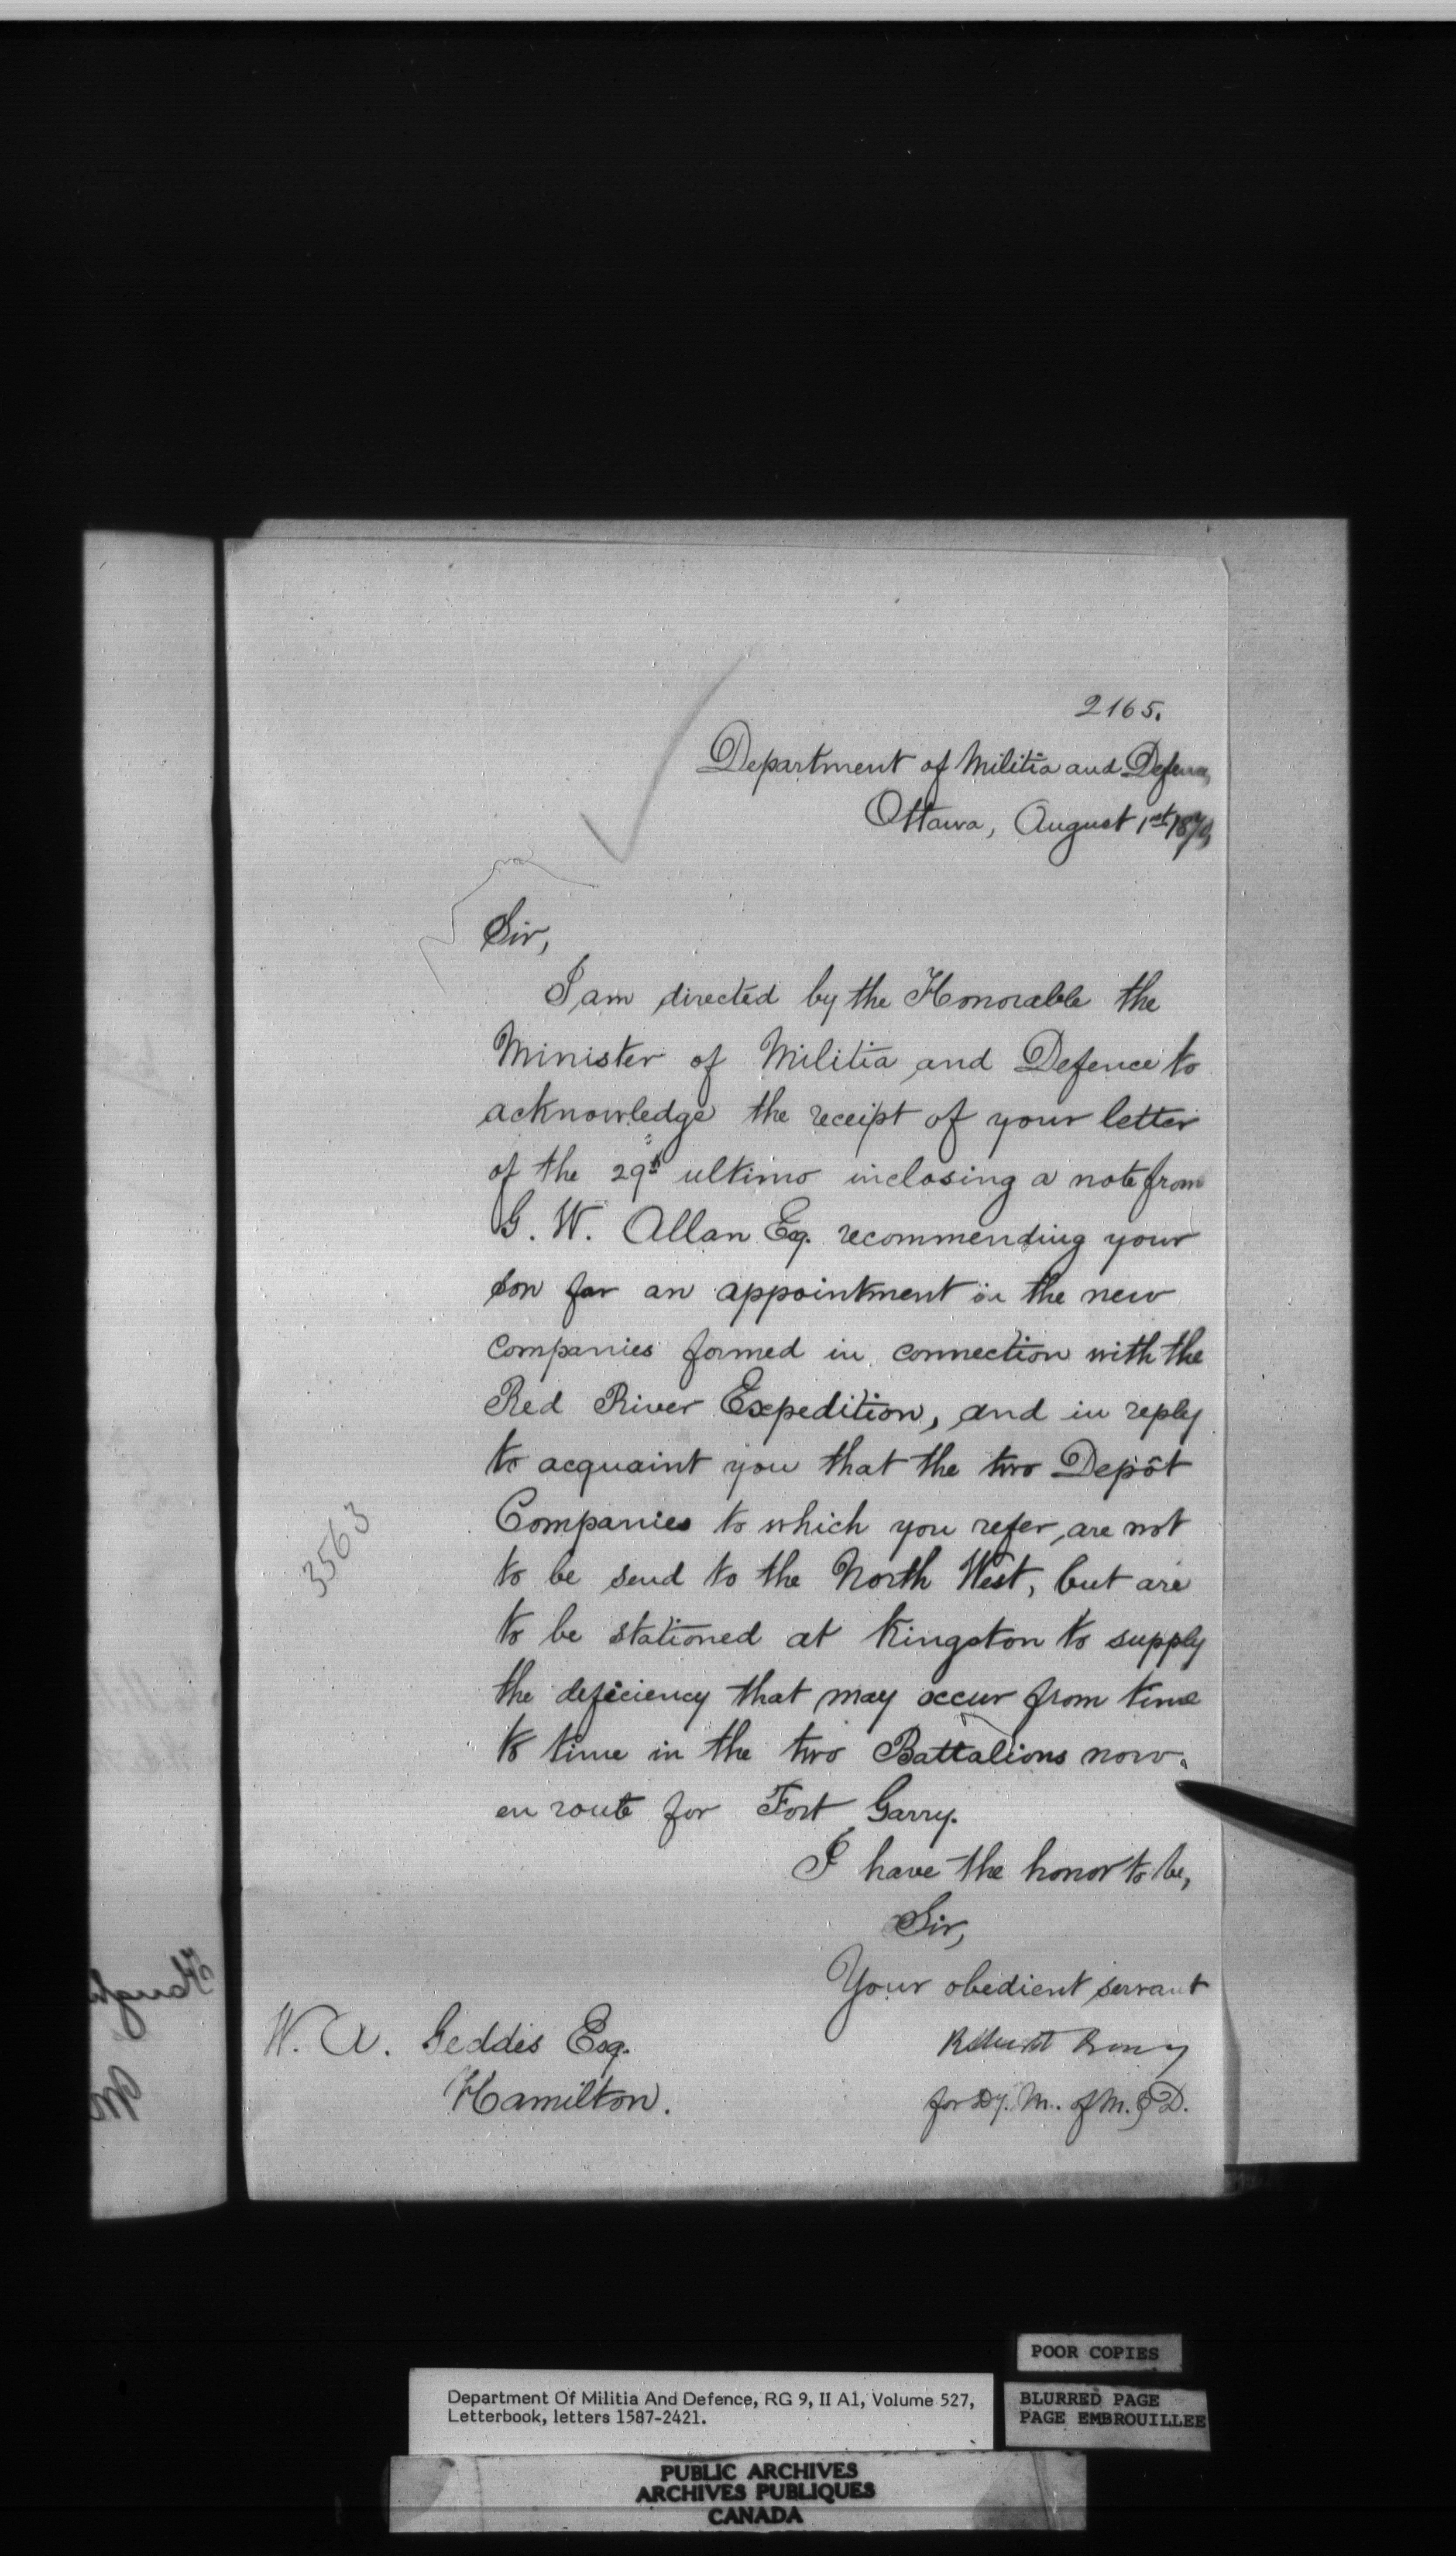 2165.
Department of Militia and Defence,
Ottawa, August 1st 1870
Sir,
I am directed by the Honorable the
Minister of Militia and Defence to
acknowledge the receipt of your letter
of the 29th ultimo inclosing a note from
G. W. Allan Esq. recommending your
son for an appointment in the new
companies formed in connection with the
Red River Expedition, and in reply
to acquaint you that the two Depôt
Companies to which you refer, are not
to be send to the North West, but are
to be stationed at Kingston to supply
the deficiency that may occur from time
to time in the two Battalions now
en route for Fort Garry.
I have the honor to be,
Sir,
Your obedient servant
for Dy. M. of M. & D.
W. A. Geddes Esq.
Hamilton.
3563
POOR COPIES
BLURRED PAGE
PAGE EMBROUILLEE
Department Of Militia And Defence, RG 9, II A1, Volume 527,
Letterbook, letters 1587-2421.
PUBLIC ARCHIVES
ARCHIVES PUBLIQUES
CANADA